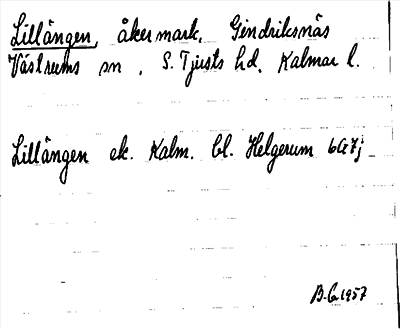 Lillängen, åkermark, Gindriksnäs
Västrums sn, S. Tjusts hd, Kalmar l.
Lillängen ek. Kalm. bl. Helgerum 6G7j
B.G. 1957